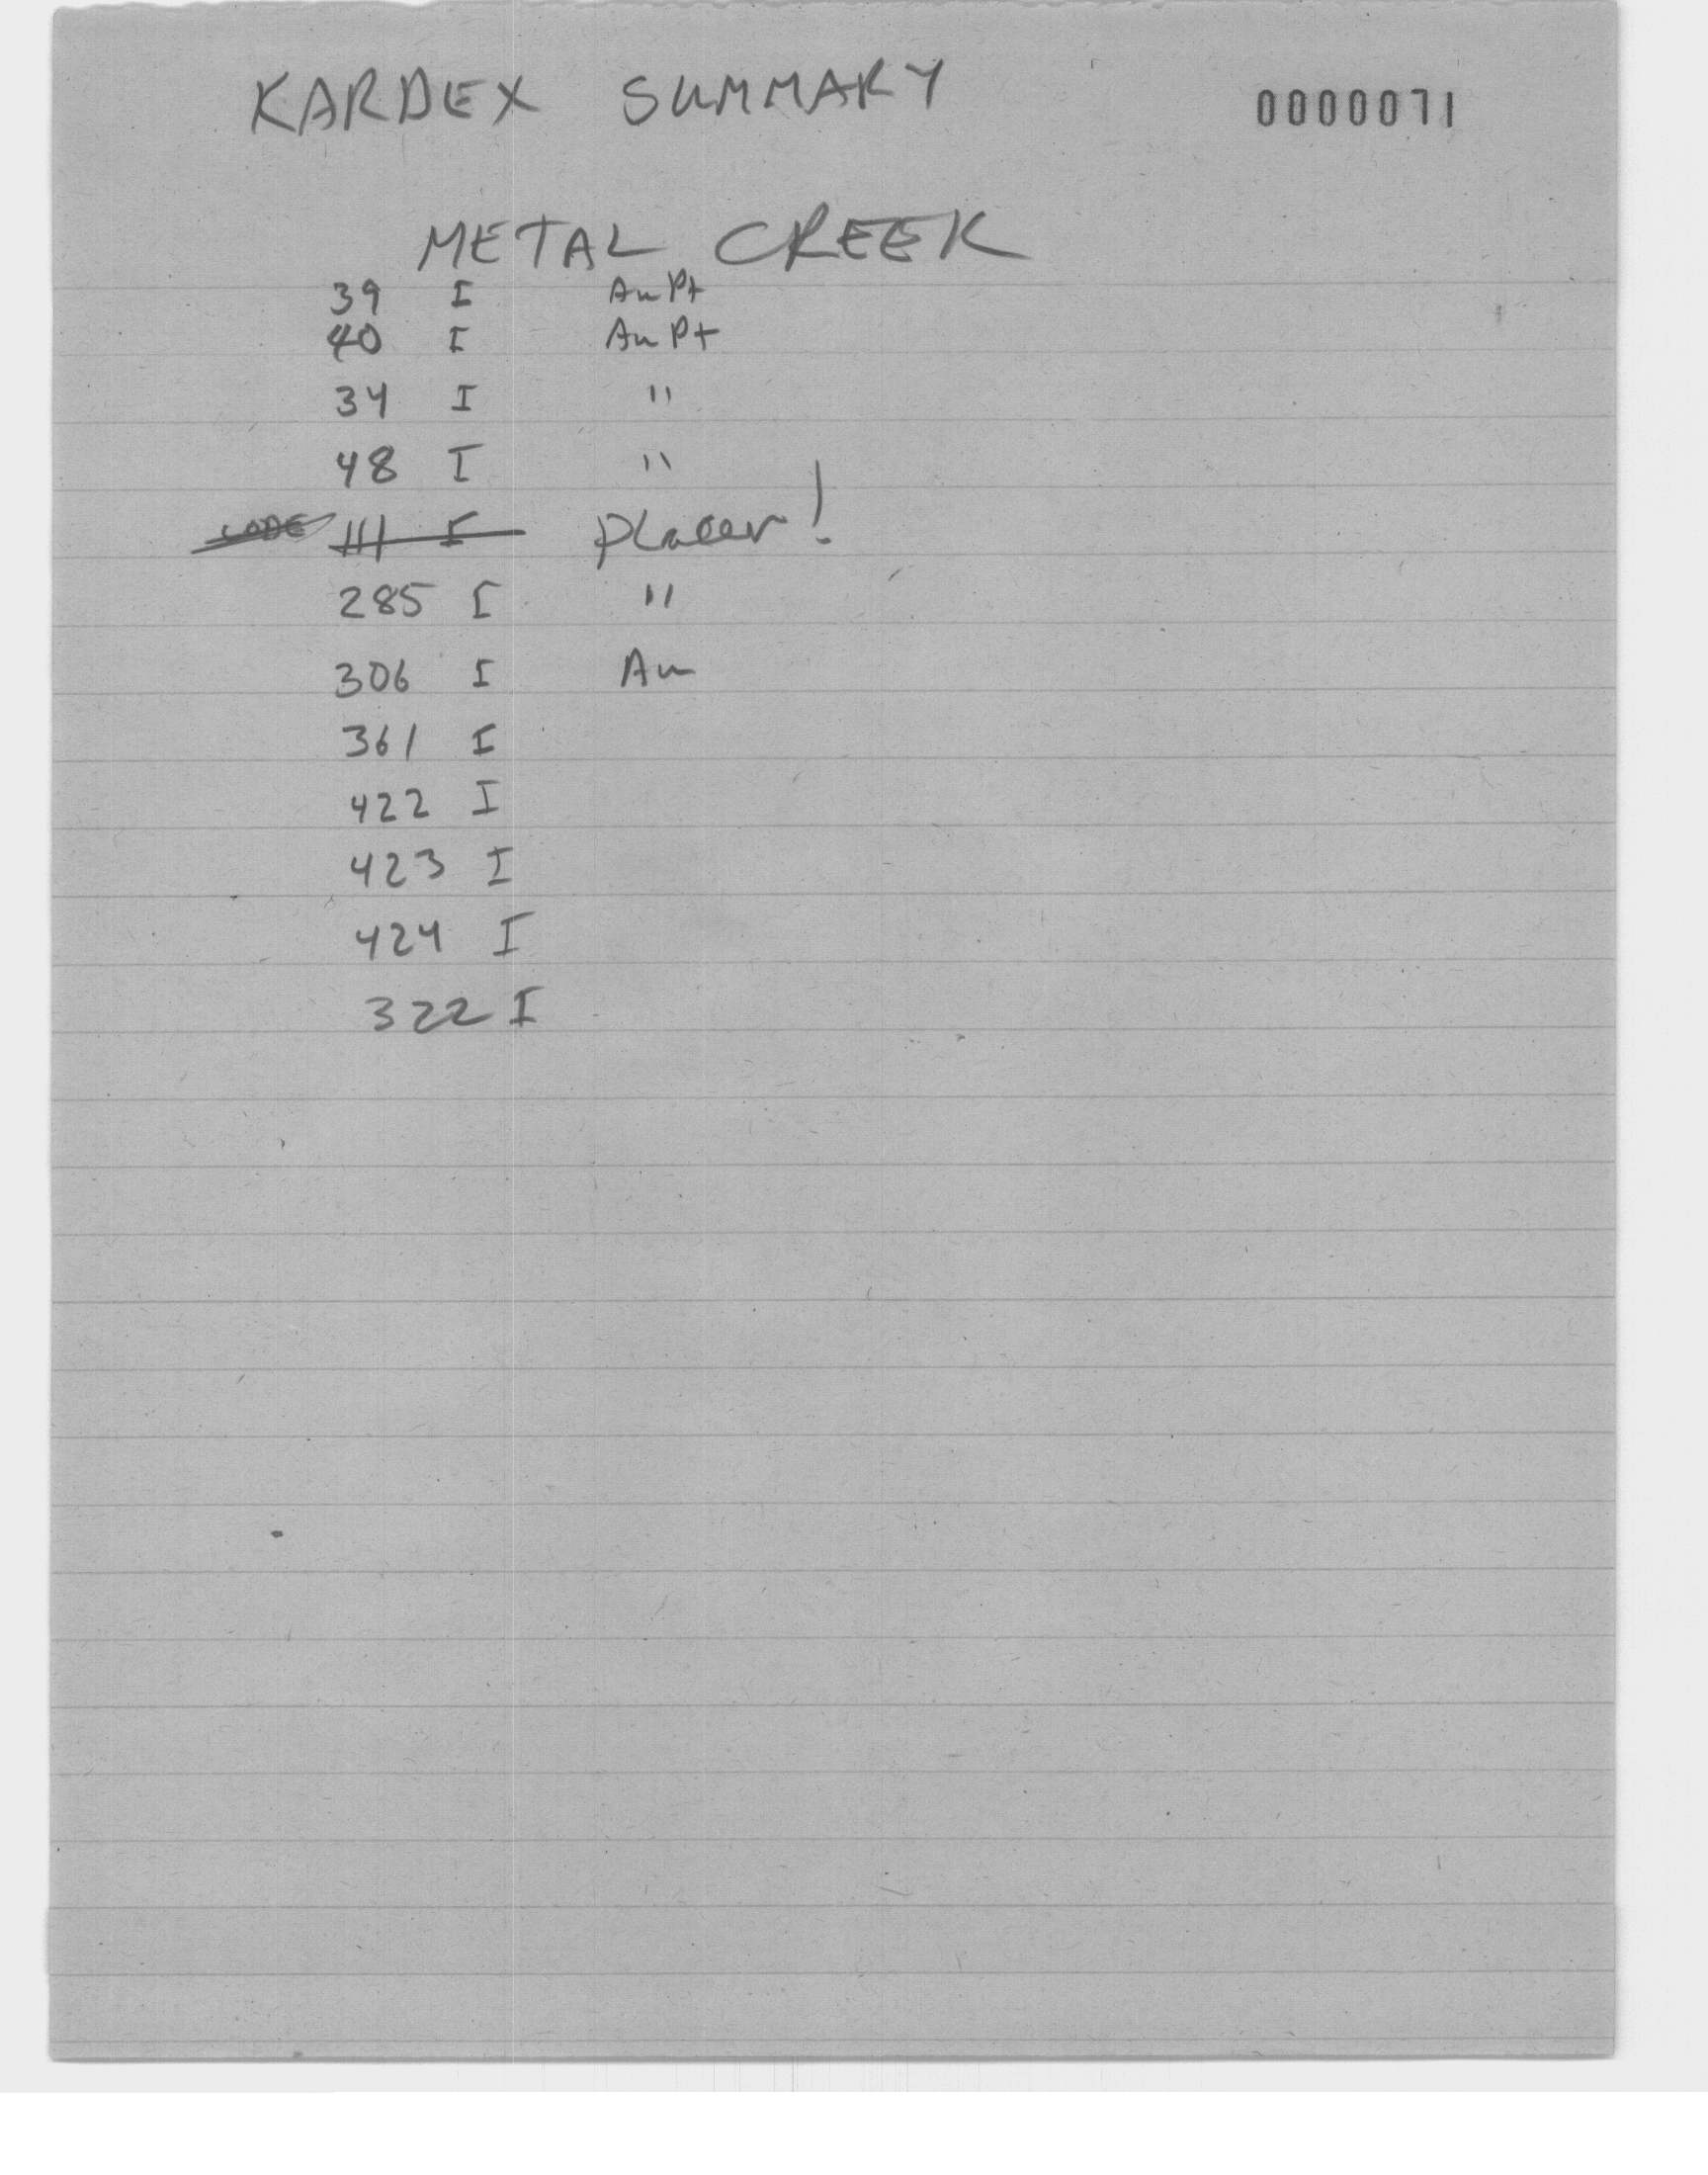 KARDEX SUMMARY 0000071
METAL CREEK
39 I Au Pt
40 I Au Pt
34 I "
48 I "
LODE 111 I Placer!
285 I "
306 I Au
361 I
422 I
423 I
424 I
322 I